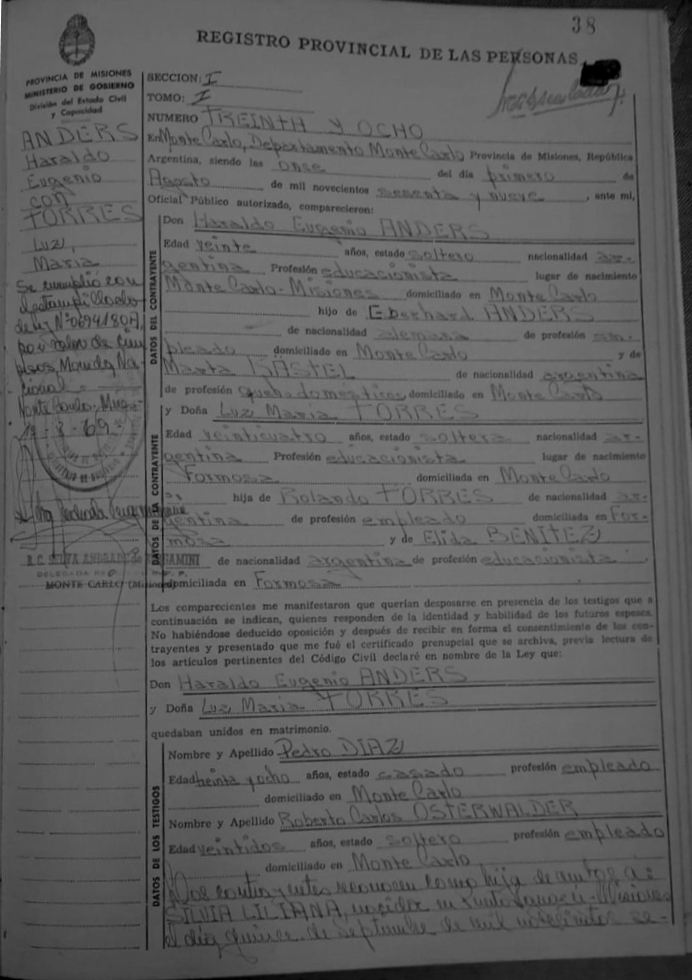 38
REGISTRO PROVINCIAL DE LAS PERSONAS
PROVINCIA DE MISIONES
MINISTERIO DE GOBIERNO
División del Estado Civil
y Capacidad
ANDERS
Haraldo
Eugenio
con
TORRES
Luz,
Maria
Se cumplió con
de ley Nº 0694180A,
por valor de
pesos Moneda Na-
cional
MONTE CARLO
SECCION: I
TOMO: I
NUMERO TREINTA Y OCHO
En Monte Carlo, Departamento Monte Carlo Provincia de Misiones, República
Argentina, siendo las once del día primero de
Agosto de mil novecientos sesenta y nueve, ante mí,
Oficial Público autorizado, comparecieron:
DATOS DEL CONTRAYENTE
Don Haraldo Eugenio ANDERS
Edad veinte años, estado soltero nacionalidad ar-
gentina Profesión educacionista lugar de nacimiento
Monte Carlo-Misiones domiciliado en Monte Carlo
hijo de Eberhard ANDERS
de nacionalidad alemana de profesión em-
pleado domiciliado en Monte Carlo y de
Marta KÄSTEL de nacionalidad argentina
de profesión queh. domésticos domiciliada en Monte Carlo
y Doña Luz Maria TORRES
Edad veinticuatro años, estado soltera nacionalidad ar-
gentina Profesión educacionista lugar de nacimiento
Formosa domiciliada en Monte Carlo
hija de Rolando TORRES de nacionalidad ar-
gentina de profesión empleado domiciliado en For-
mosa y de Elida BENITEZ
de nacionalidad argentina de profesión educacionista
domiciliada en Formosa
Los comparecientes me manifestaron que querían desposarse en presencia de los testigos que a
continuación se indican, quienes responden de la identidad y habilidad de los futuros esposos.
No habiéndose deducido oposición y después de recibir en forma el consentimiento de los con-
trayentes y presentado que me fué el certificado prenupcial que se archiva, previa lectura de
los artículos pertinentes del Código Civil declaré en nombre de la Ley que:
Don Haraldo Eugenio ANDERS
y Doña Luz Maria TORRES
quedaban unidos en matrimonio.
DATOS DE LOS TESTIGOS
Nombre y Apellido Pedro DIAZ
Edad treinta y ocho años, estado casado profesión empleado
domiciliado en Monte Carlo
Nombre y Apellido Roberto Carlos OSTERWALDER
Edad veintidos años, estado soltero profesión empleado
domiciliado en Monte Carlo
Los contrayentes reconocen como hija de ambos a:
SILVIA LILIANA, nacida en Misiones
el día quince de septiembre de mil novecientos se-